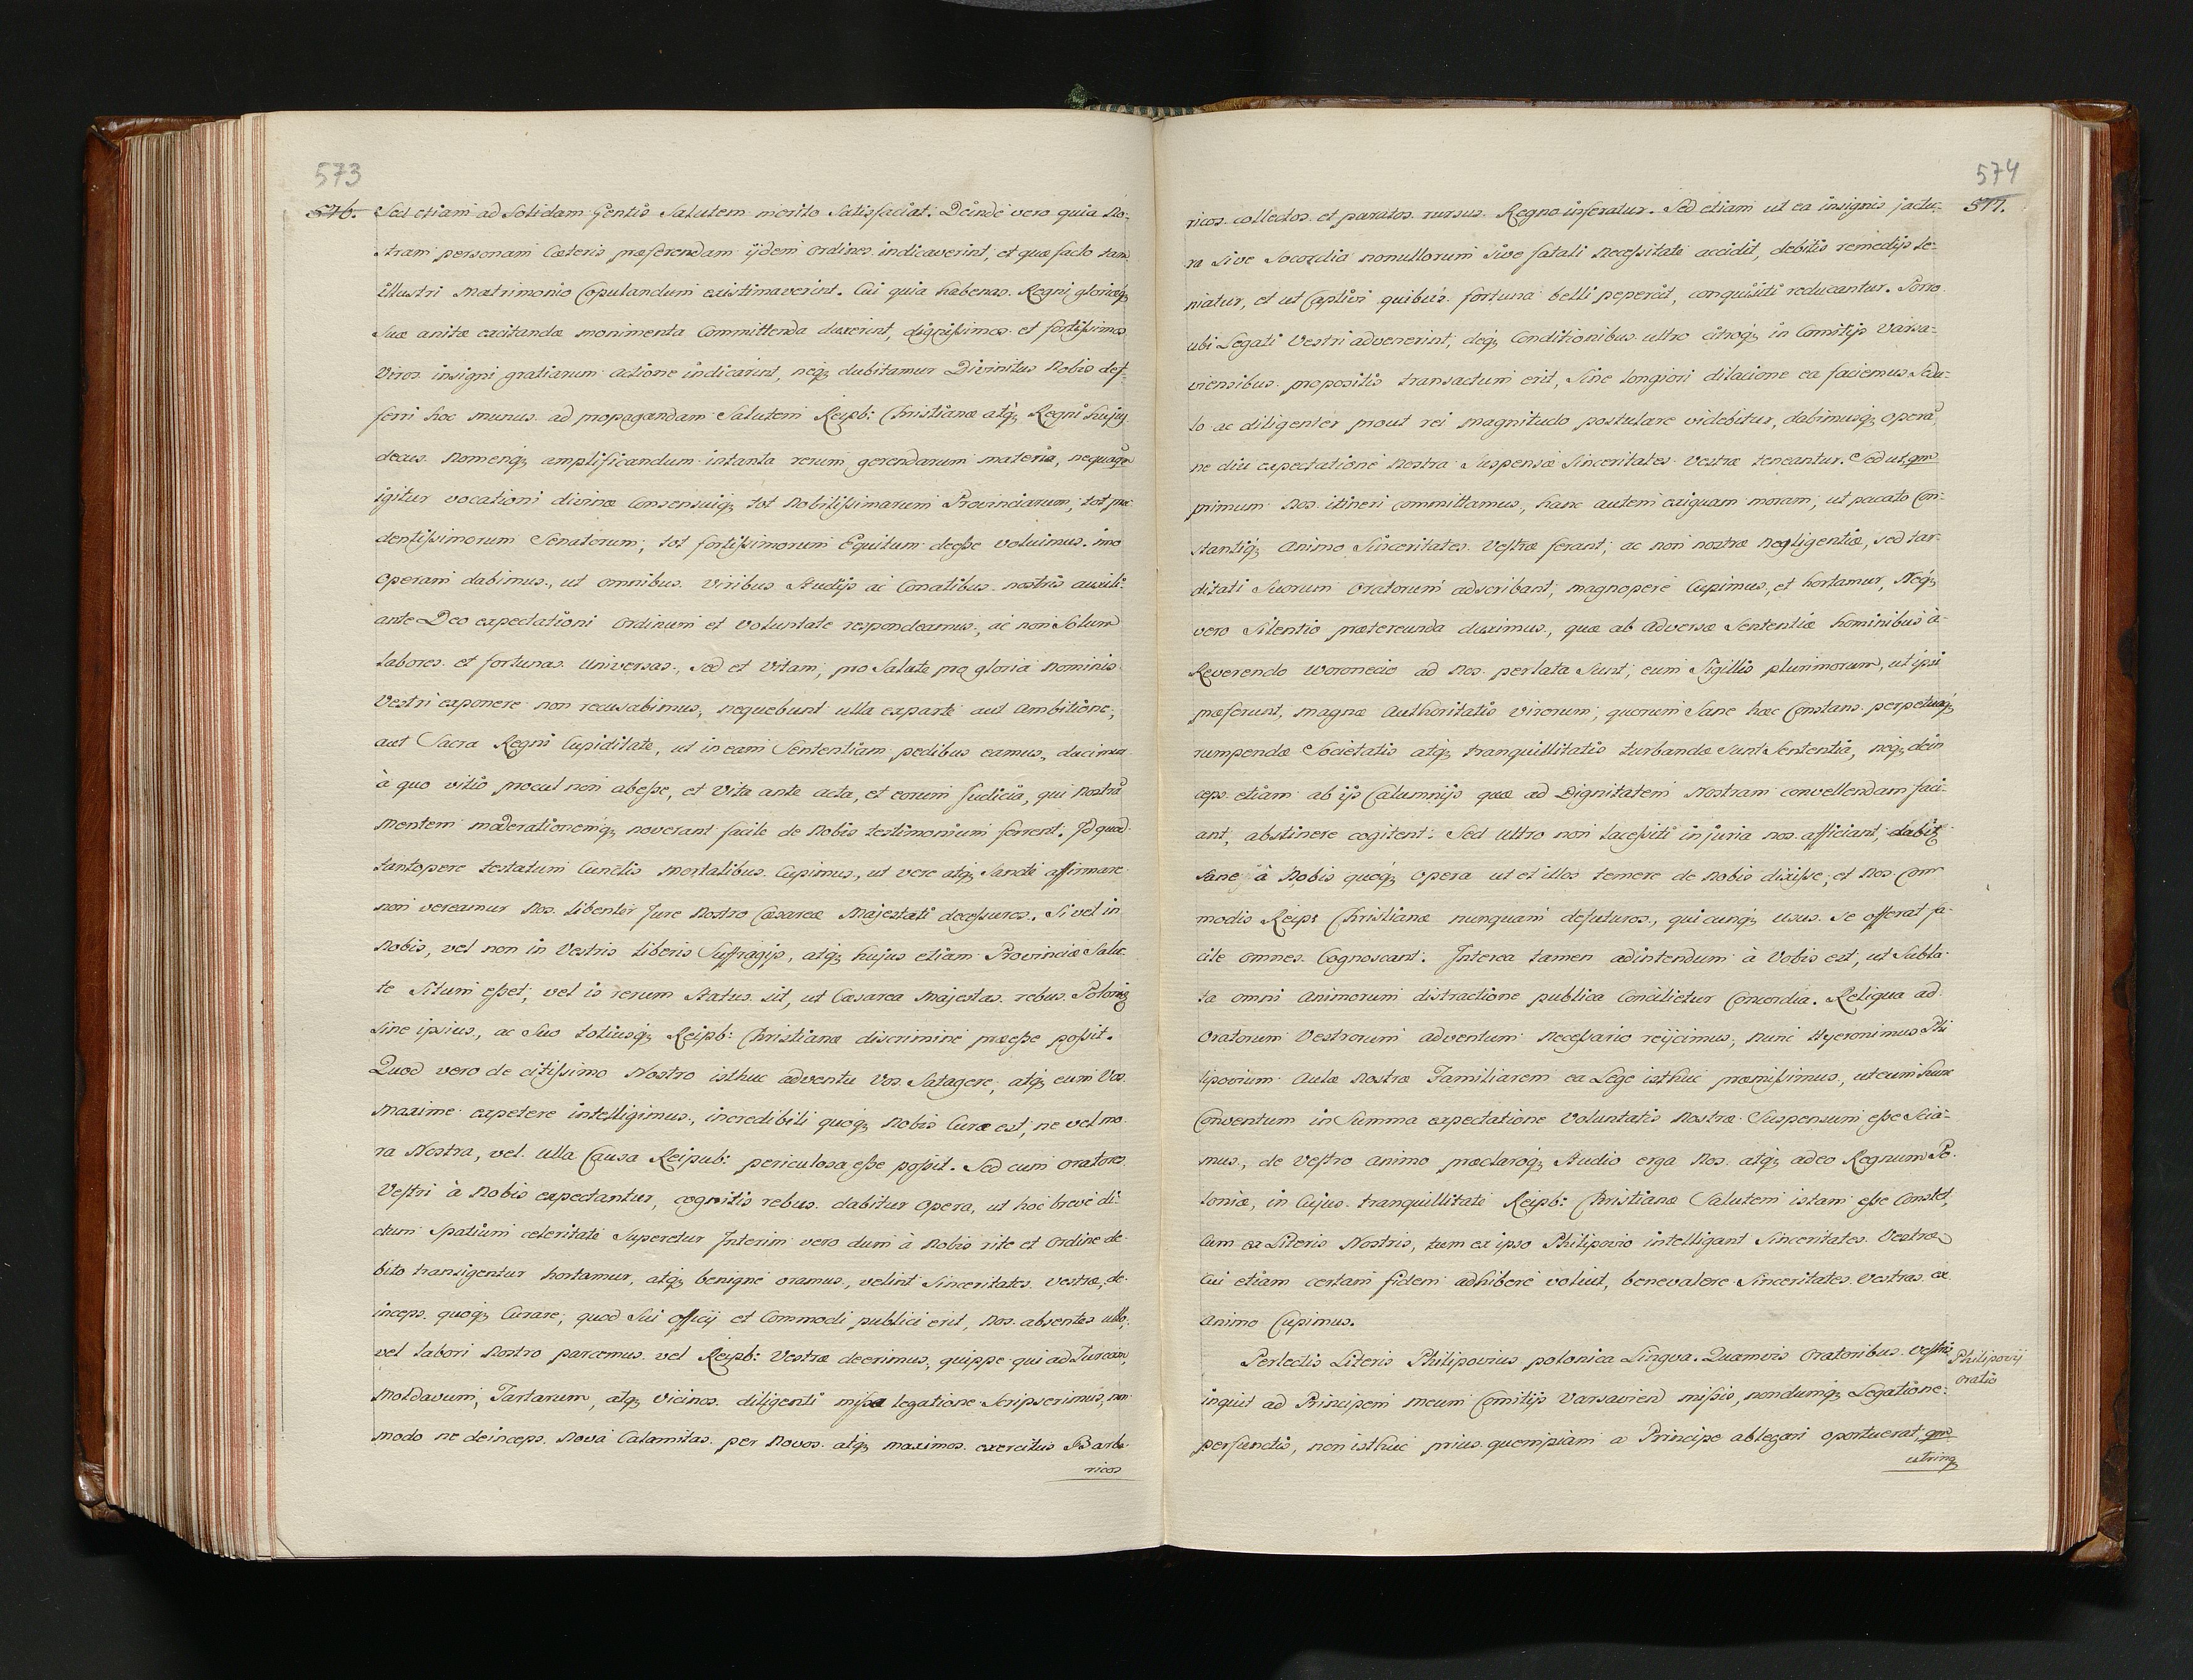 573
576. Sed etiam ad Solidam Gentis Salutem merito Satisfaciat. Deinde vero quia No-
stram personam Cæteris præferendam ijdem ordines indicaverint, et quæ facto tam
illustri Matrimonio Copulandum existimaverint. Cui quia habenas Regni gloriæq;
Suæ anitæ excitandæ monimenta Committenda duxerint, dignissimos et fortissimos
Viros insigni gratiarum actione indicarint, neq; dubitamur Divinitus Nobis def-
ferri hoc munus ad propagandam Salutem Reipb: Christianæ atq; Regni hujus
decus Nomenq; amplificandum intanta rerum gerendarum materia, nequaqm
igitur vocationi divinæ Consensuiq; tot Nobilissimarum Provinciarum, tot pru
dentissimorum Senatorum, tot fortissimorum Equitum deesse voluimus. imo
Operam dabimus, ut omnibus viribus Studijs ac Conatibus nostris auxili-
ante Deo expectationi ordinum et Voluntate respondeamus, ac non Solum
labores et fortunas Universas, Sed et Vitam, pro Salute pro gloria Nominis
Vestri exponere non recusabimus, nequebunt ulla exparte aut Ambitione,
aut Sacra Regni Cupiditate, ut in eam Sententiam pedibus eamus, ducimur
à quo vitio procul non abesse, et Vita ante acta, et eorum Judicia, qui Nostrã
Mentem moderationemq; noverant facile de Nobis testimonium ferrent. Id quod
tantopere testatum Cunctis Mortalibus Cupimus, ut vere atq; Sancte affirmare
non vereamur Nos libenter Jure Nostro Cæsareæ Majestati decessuros, Si vel in
Nobis, vel non in Vestris liberis Suffragijs, atq; hujus etiam Provinciæ Salu
te Situm esset, vel is rerum Status sit, ut Cæsarea Majestas rebus Polonis
Sine ipsius, ac Suo totiusq; Reipb: Christianæ discrimine præesse possit.
Quod vero de citissimo Nostro isthuc adventu Vos Satagere, atq; eum Vos
Maxime expetere intelligimus, incredibili quoq; Nobis Curæ est, ne vel mo
ra Nostra, vel ulla Causa Reipub: periculosa esse possit. Sed cum oratores
Vestri à Nobis expectantur, cognitis rebus dabitur Opera, ut hoc breve di-
ctum Spatium celeritate Superetur Interim vero dum à Nobis rite et Ordine de-
bito transigentur hortamur, atq; benigne oramus, velint Sinceritates Vestræ, de-
inceps quoq; Curare, quod Sui officij et Commodi publici erit, Nos absentes ullo,
vel labori Nostro parcemus vel Reipb: Vestræ deerimus, quippe qui ad Turcam,
Moldavum, Tartarum, atq; Vicinos diligenti missa legatione Scripserimus, non
modo ne deinceps Nova Calamitas per Novos atq; maximos exercitus Barba
ricos
574
577.
ricos collectos et paratos rursus Regno inferatur. Sed etiam ut ea insignis jactu-
ra Sive Socordia nonullorum Sive fatali Necessitate accidit, debitis remedijs le-
niatur, et ut Captivi quibus fortuna belli pepercit, conquisiti reducantur. Porro
ubi Legati Vestri advenerint, deq; Conditionibus ultro citroq; in Comitijs Varsa-
viensibus propositis transactum erit, Sine longiori dilacione ea faciemus Sedu-
lo ac diligenter prout rei magnitudo postulare videbitur, dabimusq; operã,
ne diu expectatione Nostra Suspensæ Sinceritates Vestræ teneantur. Sed ut qm
primum Nos itineri committamus, hanc autem exiguam moram, ut pacato Con-
stantiq; Animo Sinceritates Vestræ ferant, ac non nostræ Negligentiæ, sed tar-
ditati Suorum Oratorum adscribant, magnopere Cupimus, et hortamur, Neq;
vero Silentio prætereunda duximus, quæ ab Adversæ Sententiæ hominibus à-
Reverendo Woronecio ad Nos perlata Sunt, cum Sigillis plurimorum, ut ipsi
præferunt, magnæ Authoritatis Virorum, quorum Sane hæc Constans perpetuaq;
rumpendæ Societatis atq; tranquillitatis turbandæ Sunt Sententia, neq; dein
ceps etiam ab ijs Calumnijs quæ ad Dignitatem Nostram convellendam faci-
ant, abstinere cogitent. Sed ultro non lacessiti injuria nos afficiant, dabit
Sane à Nobis quoq; Opera ut et illos temere de Nobis dixisse, et Nos Com
modis Reip: Christianæ nunquam defuturos, qui cunq; usus se offerat fa-
cile omnes Cognoscant. Interea tamen adintendum à Vobis est, ut Subla-
ta omni Animorum distractione publica Concilietur Concordia. Reliqua ad
Oratorum Vestrorum adventum Necessario reijcimus, nunc Hyeronimum Phi
lipovium Aulæ Nostræ Familiarem ea Lege isthuc præmissimus, ut cum hunc
Conventum in Summa expectatione Voluntatis Nostræ Suspensum esse Scia-
mus, de Vestro Animo præclaroq; Studio erga Nos atq; adeo Regnum Po-
loniæ, in Cujus tranquillitate Reipb: Christianæ Salutem istam esse Constet,
Cum ex Literis Nostris, tum ex ipso Philipovio intelligant Sinceritates Vestræ
Cui etiam certam fidem adhibere velint, benevalere Sinceritates Vestras ex
Animo Cupimus.
Perlectis Literis Philipovius polonica Lingva. Quamvis Oratoribus Vestris
Philipovij
Oratio
inquit ad Principem meum Comitijs Varsavien missis, nondumq; Legatione
perfunctis, non isthuc prius quempiam a Principe ablegari oportuerat, qm
utrinq;